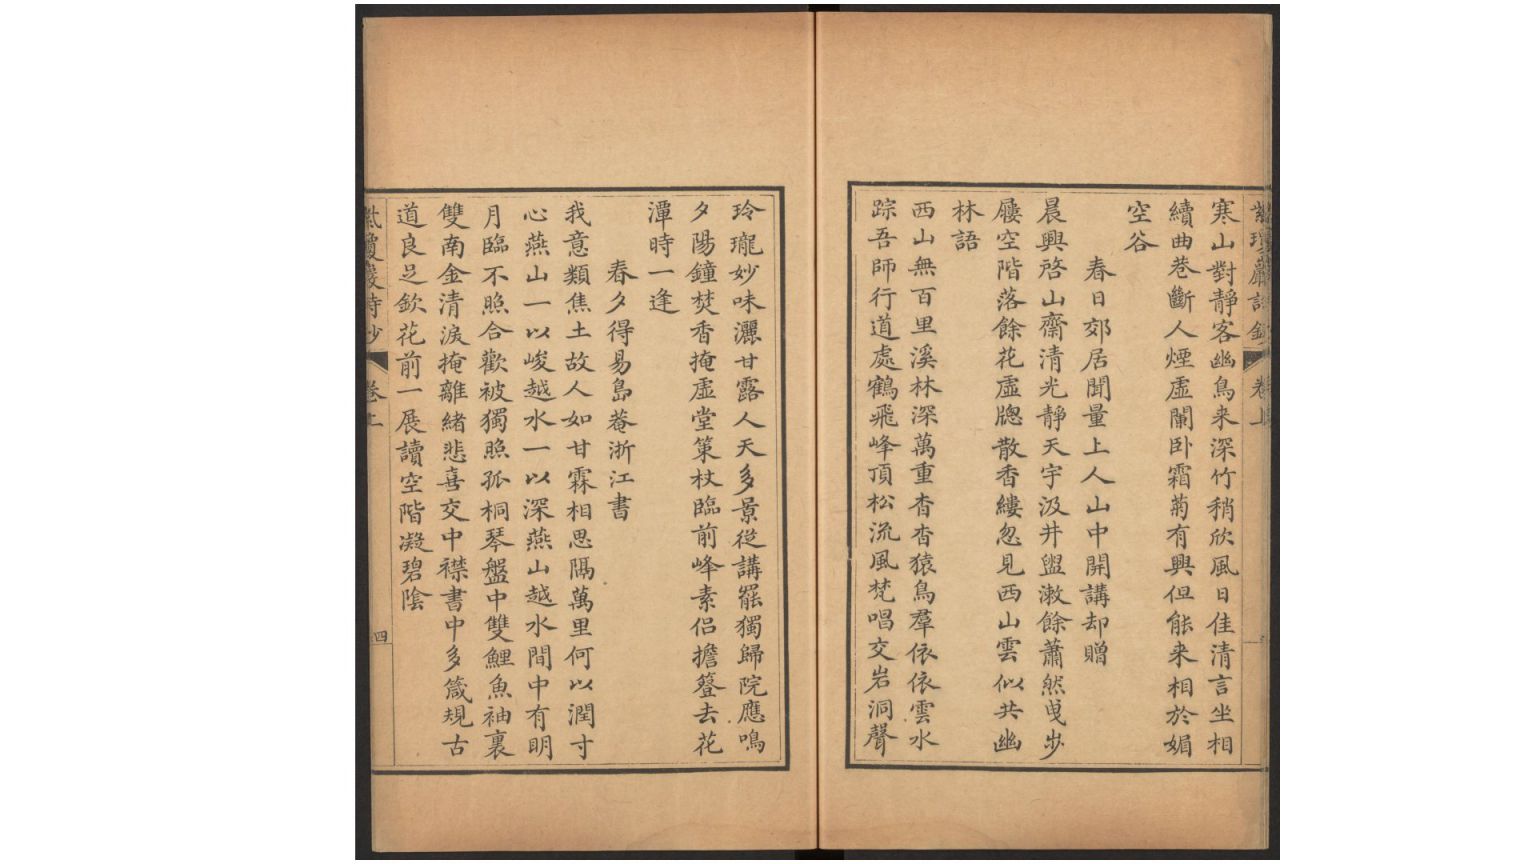 紫瓊巖詩鈔 卷上
寒山對靜客幽鳥来深竹稍欣風日佳清言坐相
續曲巷斷人煙虛闌卧霜菊有興但能来相於媚
空谷
春日郊居聞量上人山中開講却贈
晨興啓山齋清光靜天宇汲井盥漱餘蕭然曵步
屧空階落餘花虛牕散香縷忽見西山雲似共幽
林語
西山無百里溪林深萬重杳杳猿鳥羣依依雲水
踪吾師行道處鶴飛峰頂松流風梵唱交岩洞聲
玲瓏妙味灑甘露人天多景從講罷獨歸院應鳴
夕陽鐘焚香掩虛堂策杖臨前峰素侣擔簦去花
潭時一逢
春夕得易島菴浙江書
我意類焦土故人如甘霖相思隔萬里何以潤寸
心燕山一以峻越水一以深燕山越水間中有明
月臨不照合歡被獨照孤桐琴盤中雙鯉魚袖裏
雙南金清淚掩離緒悲喜交中襟書中多箴規古
道良足欽花前一展讀空階凝碧陰
紫瓊巖詩鈔 卷上 四